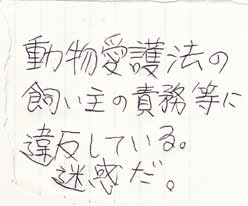 動物愛護法の
飼い主の責務等に
違反している。
迷惑だ。